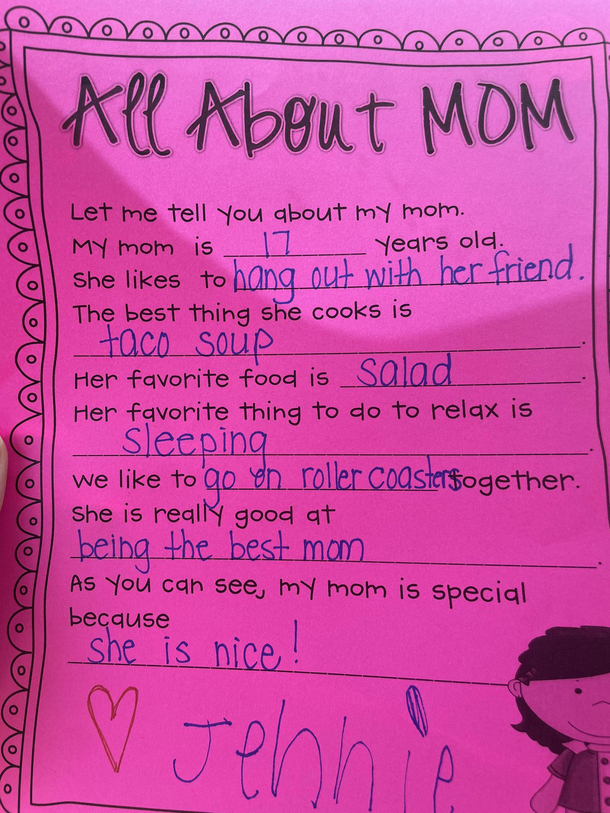 All About MOM
Let me tell you about my mom.
My mom is 17 years old.
She likes to hang out with her friend.
The best thing she cooks is
taco soup.
Her favorite food is salad.
Her favorite thing to do to relax is
sleeping.
we like to go on roller coasters together.
She is really good at
being the best mom.
As you can see, my mom is special
because
she is nice!
Jennie